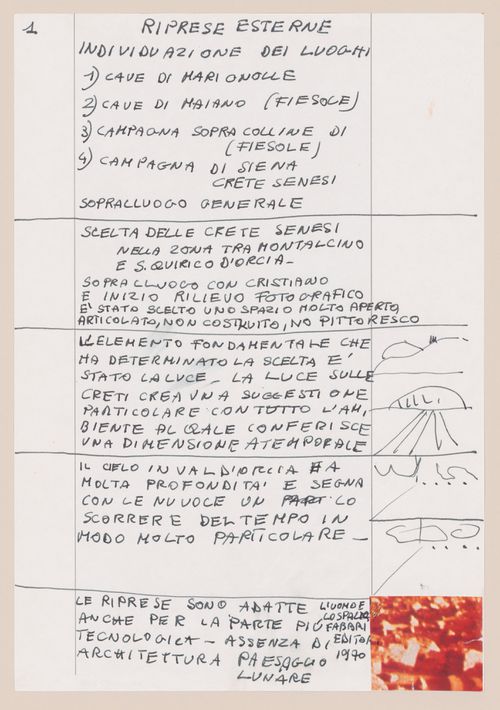 1
RIPRESE ESTERNE
INDIVIDUAZIONE DEI LUOGHI
1) CAVE DI MARIONOLLE
2) CAVE DI MAIANO (FIESOLE)
3) CAMPAGNA SOPRA COLLINE DI
(FIESOLE)
4) CAMPAGNA DI SIENA
CRETE SENESI
SOPRALLUOGO GENERALE
SCELTA DELLE CRETE SENESI
NELLA ZONA TRA MONTALCINO
E S. QUIRICO D'ORCIA -
SOPRALLUOGO CON CRISTIANO
E INIZIO RILIEVO FOTOGRAFICO
E' STATO SCELTO UNO SPAZIO MOLTO APERTO,
ARTICOLATO, NON COSTRUITO, NO PITTORESCO
ELEMENTO FONDAMENTALE CHE
HA DETERMINATO LA SCELTA E'
STATO LA LUCE - LA LUCE SULLE
CRETI CREA UNA SUGGESTIONE
PARTICOLARE CON TUTTO L'AM,
BIENTE AL QALE CONFERISCE
UNA DIMENSIONE ATEMPORALE
IL CIELO IN VAL D'ORCIA HA
MOLTA PROFONDITA' E SEGNA
CON LE NUVOLE UN LO
SCORRERE DEL TEMPO IN
MODO MOLTO PARTICOLARE -
LE RIPRESE SONO ADATTE
ANCHE PER LA PARTE PIÚ
TECNOLOGICA - ASSENZA DI
ARCHITETTURA PAESAGGIO
LUNARE
LO SPAZIO
FABBRI
EDITORI
1970